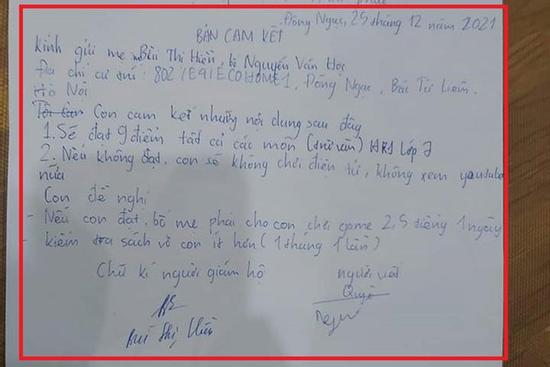 Đông Ngạc, 25 tháng 12 năm 2021
BẢN CAM KẾT
Kính gửi mẹ Bùi Thị Hiền, bố Nguyễn Văn Học
Địa chỉ cư trú: 802 /E4/ECOHOME1, Đông Ngạc, Bắc Từ Liêm.
Hà Nội
Con cam kết những nội dung sau đây
1. Sẽ đạt 9 điểm tất cả các môn (trừ văn) HK1 Lớp 7
2. Nếu không đạt, con sẽ không chơi điện tử, không xem youtube
nữa
Con đề nghị
- Nếu con đạt, bố mẹ phải cho con chơi game 2,5 tiếng 1 ngày
- kiểm tra sách vở con ít hơn (1 tháng 1 lần)
Chữ kí người giám hộ
người viết
Bùi Thị Hiền